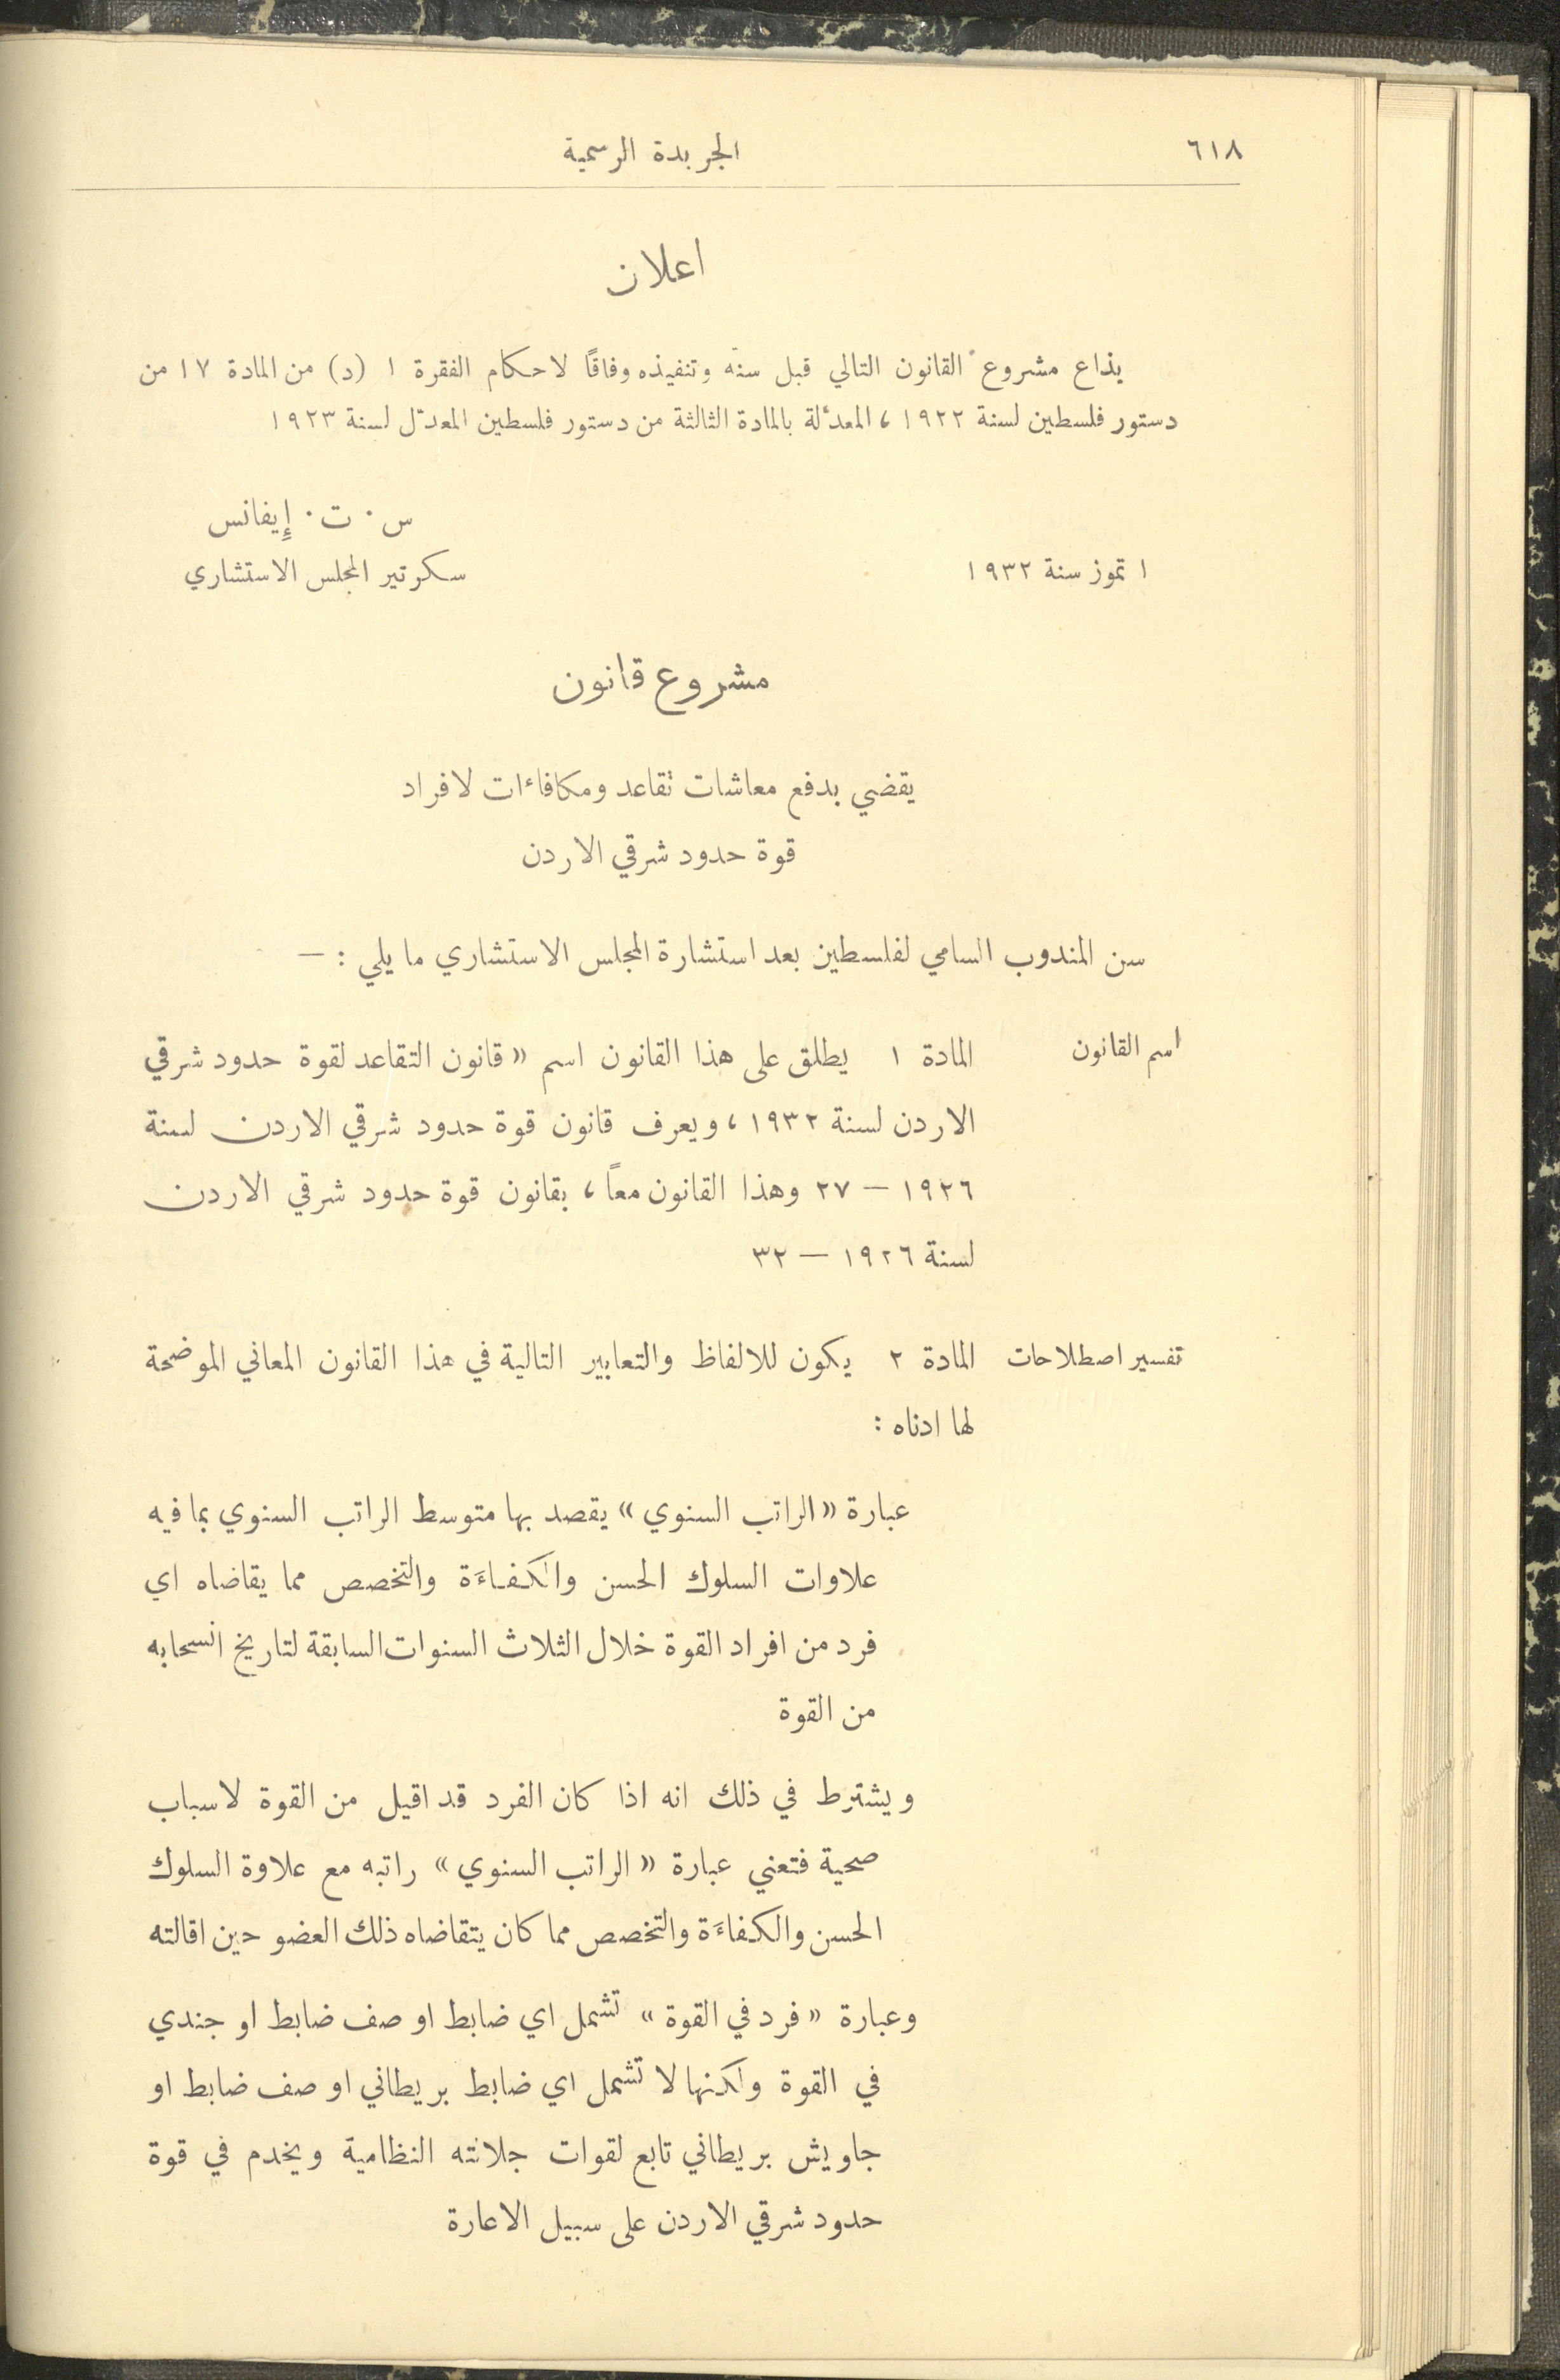 ٦١٨
الجريدة الرسمية
اعلان
يذاع مشروع القانون التالي قبل سنه وتنفيذه وفاقًا لاحكام الفقرة ١ (د) من المادة ١٧ من
دستور فلسطين لسنة ١٩٢٢، المعدّلة بالمادة الثالثة من دستور فلسطين المعدّل لسنة ١٩٢٣
س. ت. إيفانس
١ تموز سنة ١٩٣٢
سكرتير المجلس الاستشاري
مشروع قانون
يقضي بدفع معاشات تقاعد ومكافاءات لافراد
قوة حدود شرقي الاردن
سن المندوب السامي لفلسطين بعد استشارة المجلس الاستشاري ما يلي : —
اسم القانون
المادة ١ يطلق على هذا القانون اسم «قانون التقاعد لقوة حدود شرقي
الاردن لسنة ١٩٣٢، ويعرف قانون قوة حدود شرقي الاردن لسنة
١٩٢٦ — ٢٧ وهذا القانون معاً، بقانون قوة حدود شرقي الاردن
لسنة ١٩٢٦ — ٣٢
تفسير اصطلاحات
المادة ٢ يكون للالفاظ والتعابير التالية في هذا القانون المعاني الموضحة
لها ادناه :
عبارة «الراتب السنوي» يقصد بها متوسط الراتب السنوي بما فيه
علاوات السلوك الحسن والكفاءَة والتخصص مما يقاضاه اي
فرد من افراد القوة خلال الثلاث السنوات السابقة لتاريخ انسحابه
من القوة
ويشترط في ذلك انه اذا كان الفرد قد اقيل من القوة لاسباب
صحية فتعني عبارة «الراتب السنوي» راتبه مع علاوة السلوك
الحسن والكفاءَة والتخصص مما كان يتقاضاه ذلك العضو حين اقالته
وعبارة «فرد في القوة» تشمل اي ضابط او صف ضابط او جندي
في القوة ولكنها لا تشمل اي ضابط بريطاني او صف ضابط او
جاويش بريطاني تابع لقوات جلالته النظامية ويخدم في قوة
حدود شرقي الاردن على سبيل الاعارة